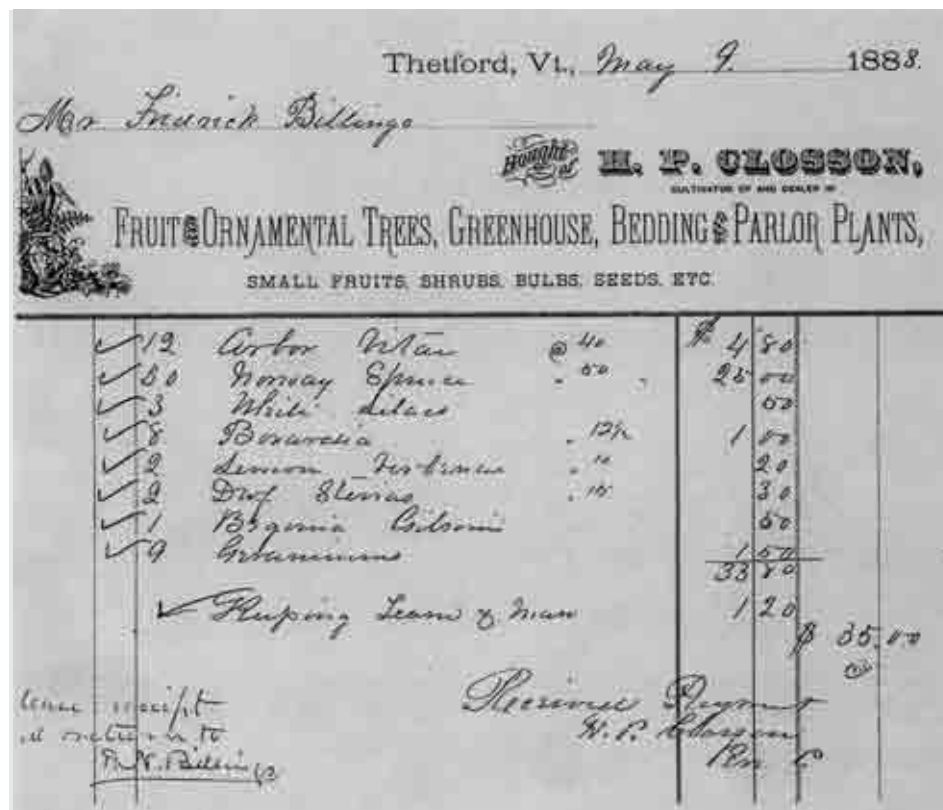 Thetford, Vt., May 9. 1888.
Mr Fredrick Billings
Bought of H. P. CLOSSON,
CULTIVATOR OF AND DEALER IN
FRUIT & ORNAMENTAL TREES, GREENHOUSE, BEDDING & PARLOR PLANTS,
SMALL FRUITS, SHRUBS, BULBS, SEEDS, ETC.
12 Arbor Vitae @ 40 $ 4 80
50 Norway Spruce " 50 " 25 00
3 White Lilacs 50
8 Bouvardia " 12½ 1 00
2 Lemon Verbenas " 10 20
2 Dwf Stevias " 15 30
1 Begonia Gilsoni 50
9 Geraniums 1 50
33 80
Keeping Team & man 1 20
$ 35.00
Received Payment
H. P. Closson
receipt
return to
F. N. Billings